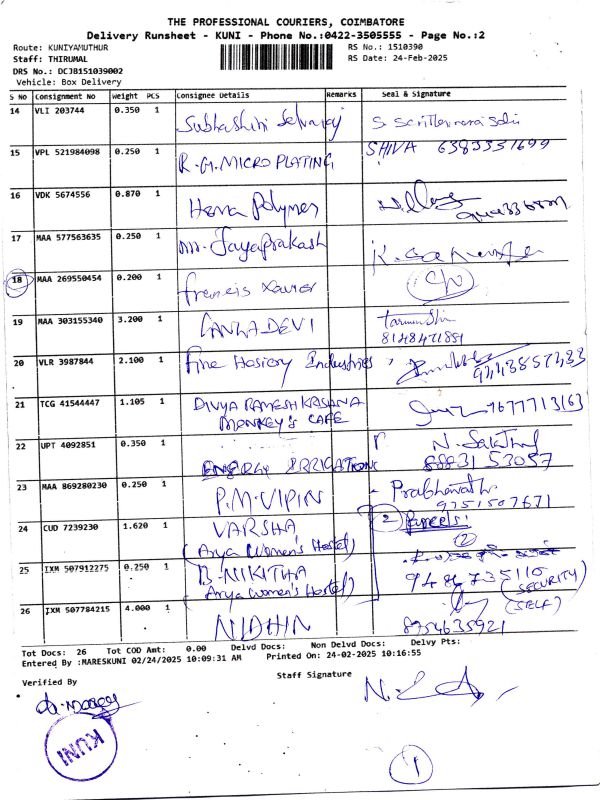 THE PROFESSIONAL COURIERS, COIMBATORE
Delivery Runsheet - KUNI - Phone No.:0422-3505555 - Page No.:2
Route: KUNIYAMUTHUR
RS No.: 1510390
Staff: THIRUMAL
RS Date: 24-Feb-2025
DRS No.: DCJB151039002
Vehicle: Box Delivery
S No Consignment No Weight PCS Consignee Details Remarks Seal & Signature
14 VLI 203744 0.350 1 Subhashini Selvaraj
15 VPL 521984098 0.250 1 R.G. MICRO PLATING SHIVA 6383351699
16 VDK 5674556 0.870 1 Hema Polymer
17 MAA 577563635 0.250 1 Mr. Jayaprakash
18 MAA 269550454 0.200 1 Francis Xavier
19 MAA 303155340 3.200 1 DEVI
8148471891
20 VLR 3987844 2.100 1 Fine Hosiery Industries
9443857433
21 TCG 41544447 1.105 1 DIVYA RAMESH KRISHNA
MONKEY'S CAFE 7677713163
22 UPT 4092851 0.350 1 ENERGY IRRIGATIONS
88831 53057
23 MAA 869280230 0.250 1 P.M.VIPIN Prabhavathi
9751507671
24 CUD 7239230 1.620 1 VARSHA 2 Parcels:
(Arya Women's Hostel) (2)
25 IXM 507912275 0.250 1 B.NIKITHA 9486735110
(Arya Women's Hostel) (SECURITY)
(SELF)
26 IXM 507784215 4.000 1 NIDHIN 8954635921
Tot Docs: 26 Tot COD Amt: 0.00 Delvd Docs: Non Delvd Docs: Delvy Pts:
Entered By :MARESKUNI 02/24/2025 10:09:31 AM Printed On: 24-02-2025 10:16:55
Verified By
Staff Signature
KUNI
1